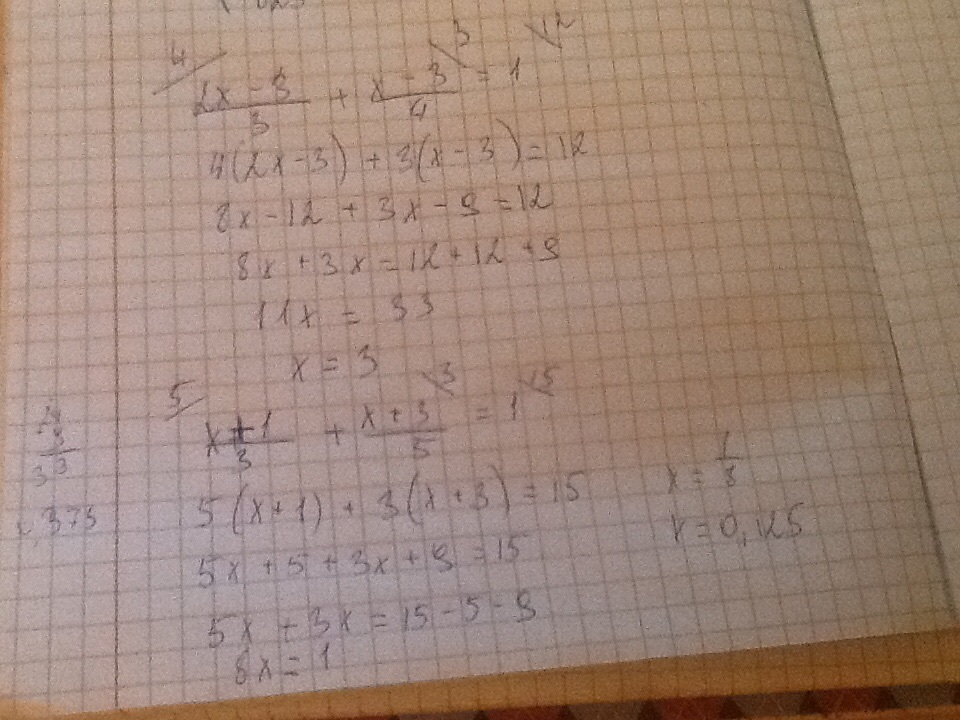 4 3 12
(2x - 3)/3 + (x - 3)/4 = 1
4(2x - 3) + 3(x - 3) = 12
8x - 12 + 3x - 9 = 12
8x + 3x = 12 + 12 + 9
11x = 33
x = 3
5 3 15
(x + 1)/3 + (x + 3)/5 = 1
5(x + 1) + 3(x + 3) = 15
5x + 5 + 3x + 9 = 15
5x + 3x = 15 - 5 - 9
8x = 1
x = 1/8
x = 0,125